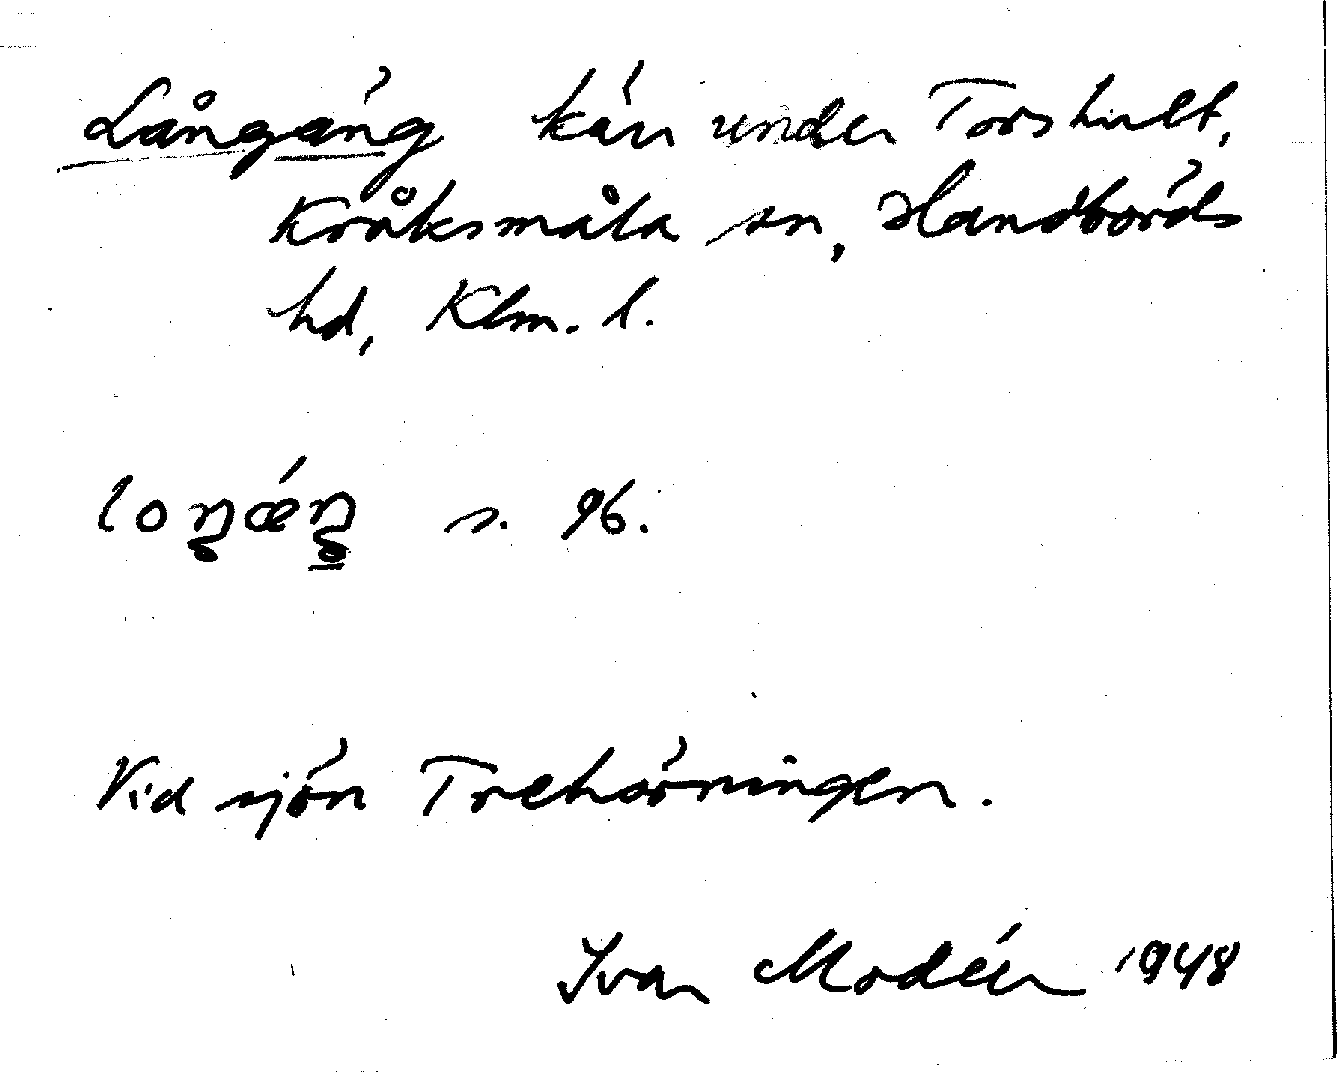 Långäng kärr under Torshult,
Kråksmåla sn, Handbörds
hd, Klm. l.
loŋǽŋ s. 96.
Vid sjön Trehörningen.
Ivar Modéer 1948